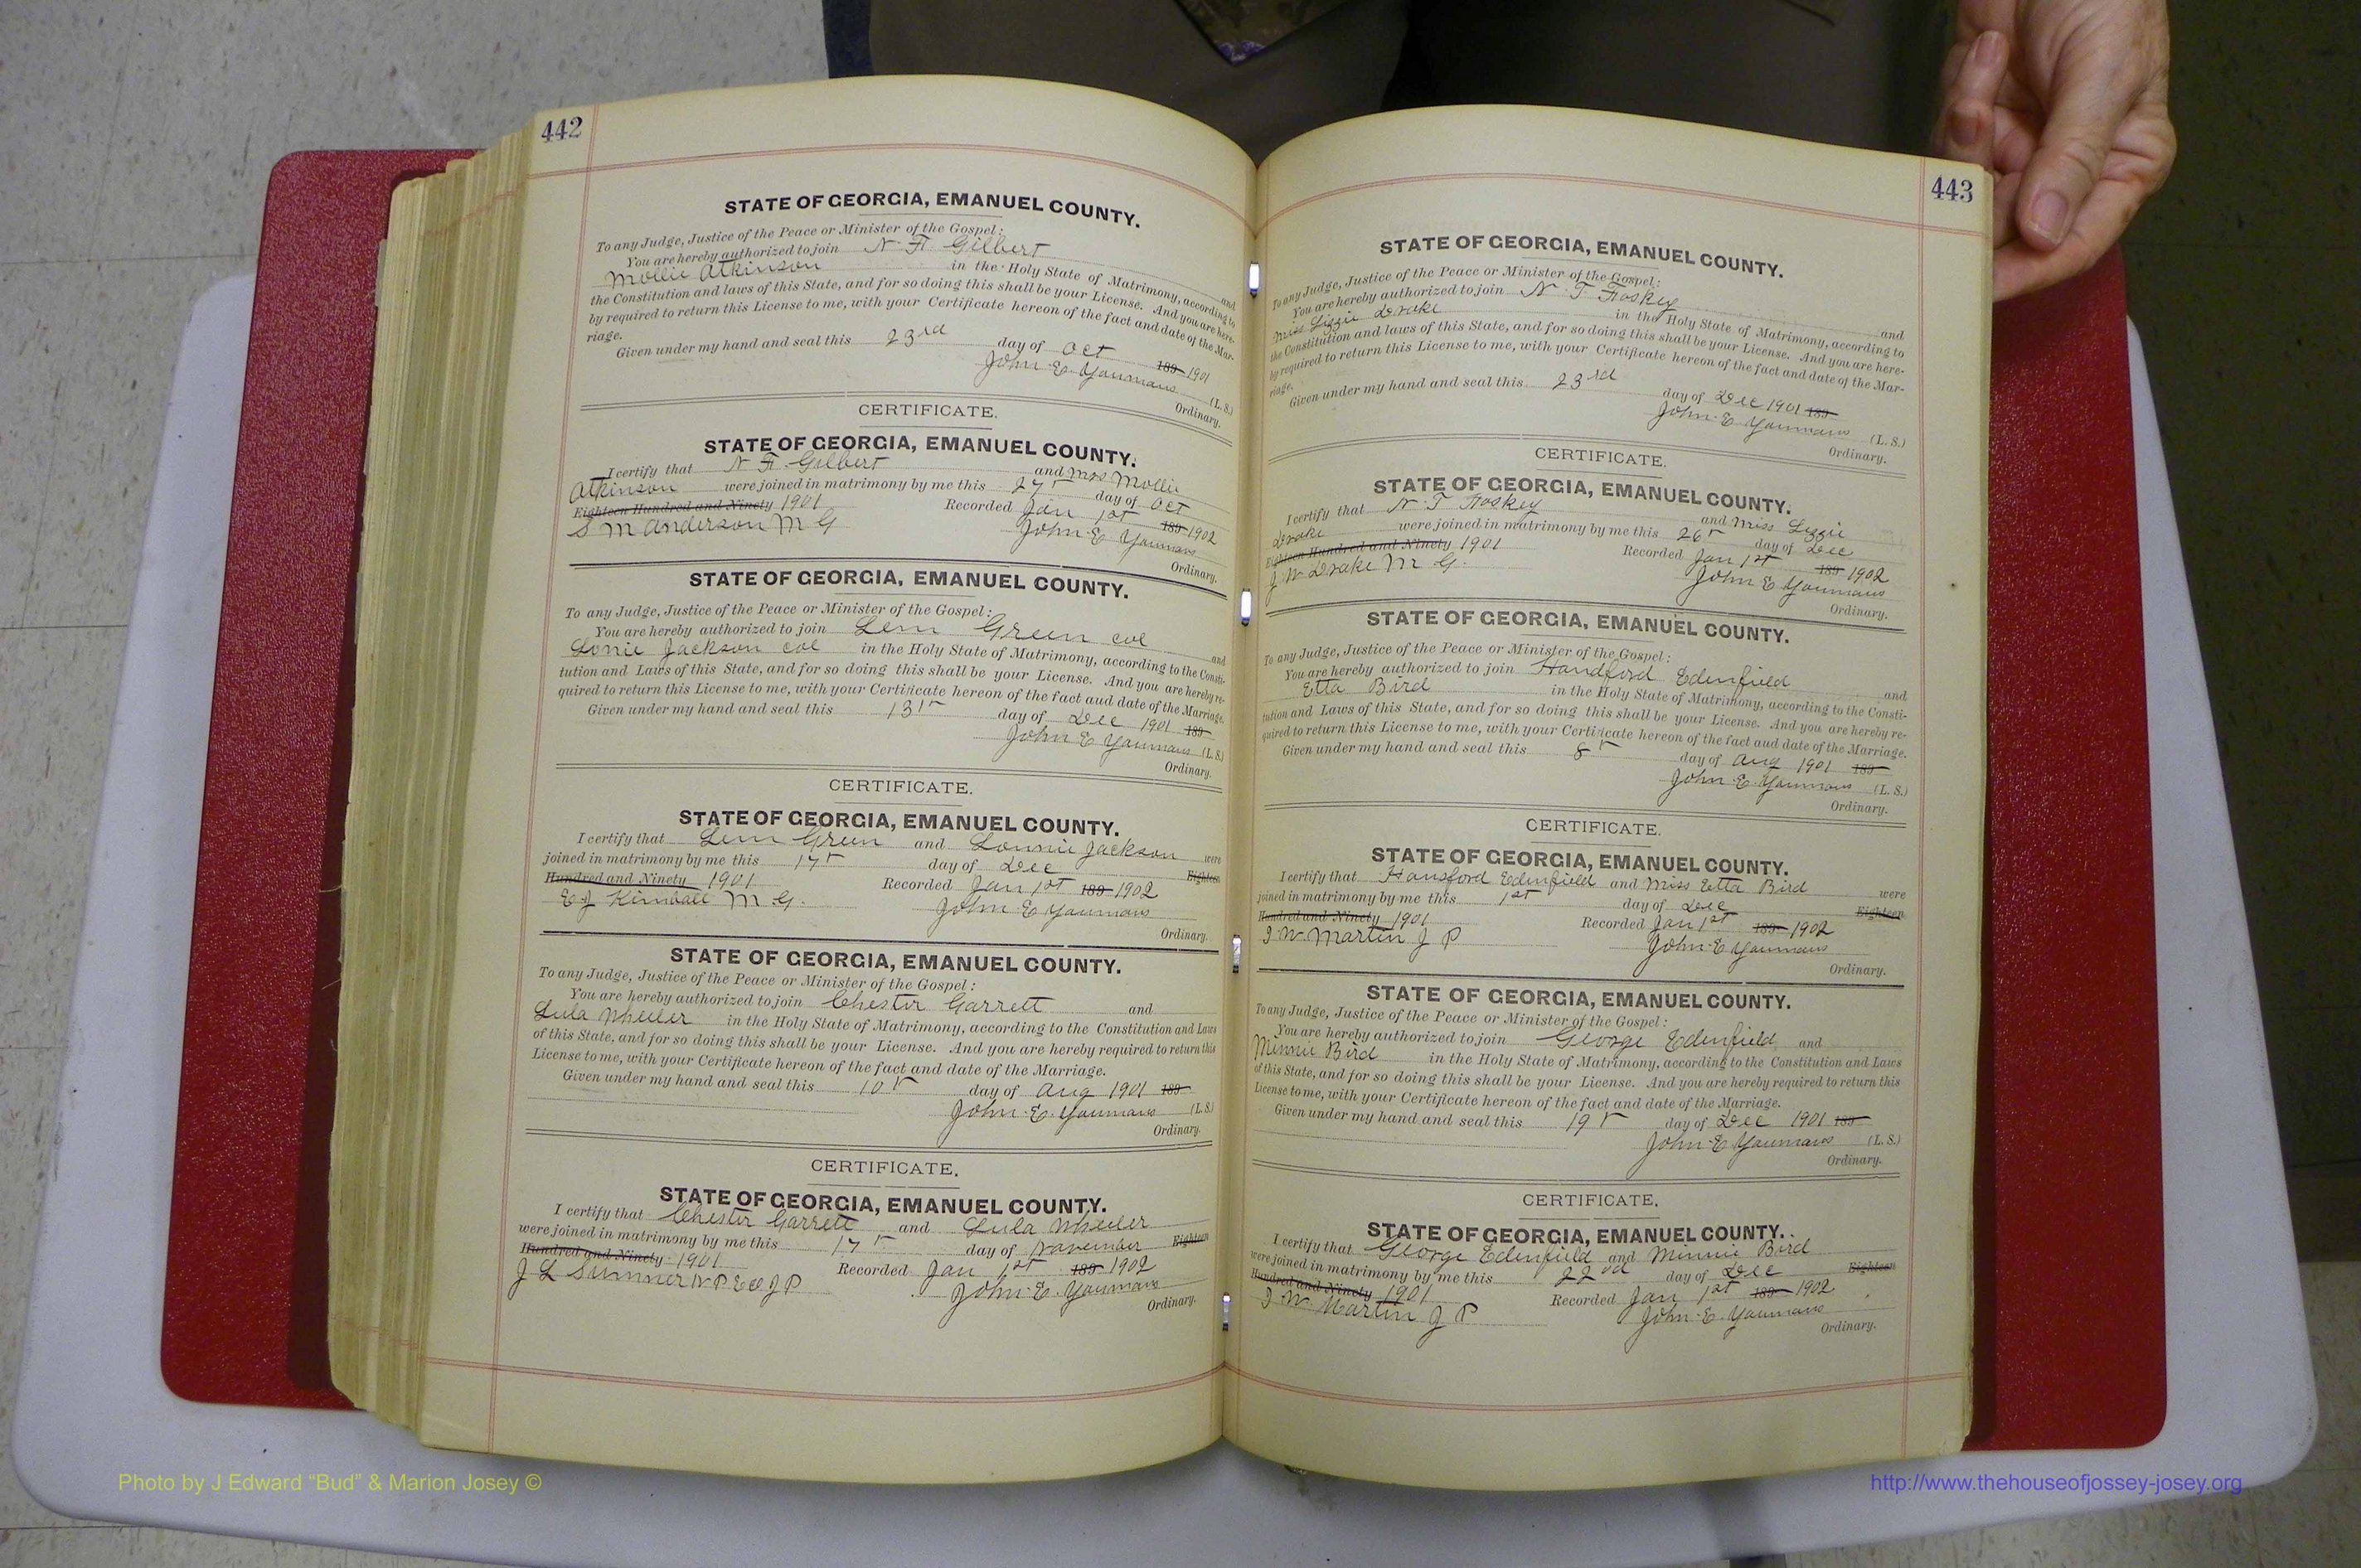 442
STATE OF GEORGIA, EMANUEL COUNTY.
To any Judge, Justice of the Peace or Minister of the Gospel:
You are hereby authorized to join N F Gilbert and
Mollie Atkinson in the Holy State of Matrimony, according to
the Constitution and laws of this State, and for so doing this shall be your License. And you are here-
by required to return this License to me, with your Certificate hereon of the fact and date of the Mar-
riage.
Given under my hand and seal this 23rd day of Oct 189 1901
John E. Youmans (L. S.)
Ordinary.
CERTIFICATE.
STATE OF GEORGIA, EMANUEL COUNTY.
I certify that N F Gilbert and Miss Mollie
Atkinson were joined in matrimony by me this 27 day of Oct
Eighteen Hundred and Ninety 1901 Recorded Jan 1st 189 1902
S M Anderson M G John E Youmans
Ordinary.
STATE OF GEORGIA, EMANUEL COUNTY.
To any Judge, Justice of the Peace or Minister of the Gospel:
You are hereby authorized to join Lem Green col and
Lonie Jackson col in the Holy State of Matrimony, according to the Consti-
tution and Laws of this State, and for so doing this shall be your License. And you are hereby re-
quired to return this License to me, with your Certificate hereon of the fact aud date of the Marriage.
Given under my hand and seal this 13 day of Dec 1901 189
John E Youmans (L. S.)
Ordinary.
CERTIFICATE.
STATE OF GEORGIA, EMANUEL COUNTY.
I certify that Lem Green and Lonnie Jackson were
joined in matrimony by me this 17 day of Dec Eighteen
Hundred and Ninety 1901 Recorded Jan 1st 189 1902
E J Kimball M G. John E Youmans
Ordinary.
STATE OF GEORGIA, EMANUEL COUNTY.
To any Judge, Justice of the Peace or Minister of the Gospel:
You are hereby authorized to join Chester Garrett and
Lula Wheeler in the Holy State of Matrimony, according to the Constitution and Laws
of this State, and for so doing this shall be your License. And you are hereby required to return this
License to me, with your Certificate hereon of the fact and date of the Marriage.
Given under my hand and seal this 10 day of Aug 1901 189
John E. Youmans (L. S.)
Ordinary.
CERTIFICATE.
STATE OF GEORGIA, EMANUEL COUNTY.
I certify that Chester Garrett and Lula Wheeler
were joined in matrimony by me this 17 day of November Eighteen
Hundred and Ninety 1901 Recorded Jan 1st 189 1902
J L Sumner N P & Ex J P John E. Youmans
Ordinary.
443
STATE OF GEORGIA, EMANUEL COUNTY.
To any Judge, Justice of the Peace or Minister of the Gospel:
You are hereby authorized to join N. T Foskey and
Miss Lizzie Drake in the Holy State of Matrimony, according to
the Constitution and laws of this State, and for so doing this shall be your License. And you are here-
by required to return this License to me, with your Certificate hereon of the fact and date of the Mar-
riage.
Given under my hand and seal this 23rd day of Dec 1901 189
John E Youmans (L. S.)
Ordinary.
CERTIFICATE.
STATE OF GEORGIA, EMANUEL COUNTY.
I certify that N. T Foskey and Miss Lizzie
Drake were joined in matrimony by me this 26 day of Dec
Eighteen Hundred and Ninety 1901 Recorded Jan 1st 189 1902
J W Drake M G. John E Youmans
Ordinary.
STATE OF GEORGIA, EMANUEL COUNTY.
To any Judge, Justice of the Peace or Minister of the Gospel:
You are hereby authorized to join Handford Edenfield and
Etta Bird in the Holy State of Matrimony, according to the Consti-
tution and Laws of this State, and for so doing this shall be your License. And you are hereby re-
quired to return this License to me, with your Certificate hereon of the fact aud date of the Marriage.
Given under my hand and seal this 8 day of Aug 1901 189
John E. Youmans (L. S.)
Ordinary.
CERTIFICATE.
STATE OF GEORGIA, EMANUEL COUNTY.
I certify that Hansford Edenfield and Miss Etta Bird were
joined in matrimony by me this 1st day of Dec Eighteen
Hundred and Ninety 1901 Recorded Jan 1st 189 1902
I. W. Martin J P John E Youmans
Ordinary.
STATE OF GEORGIA, EMANUEL COUNTY.
To any Judge, Justice of the Peace or Minister of the Gospel:
You are hereby authorized to join George Edenfield and
Minnie Bird in the Holy State of Matrimony, according to the Constitution and Laws
of this State, and for so doing this shall be your License. And you are hereby required to return this
License to me, with your Certificate hereon of the fact and date of the Marriage.
Given under my hand and seal this 19 day of Dec 1901 189
John E Youmans (L. S.)
Ordinary.
CERTIFICATE.
STATE OF GEORGIA, EMANUEL COUNTY.
I certify that George Edenfield and Minnie Bird
were joined in matrimony by me this 22nd day of Dec Eighteen
Hundred and Ninety 1901 Recorded Jan 1st 189 1902
I. W. Martin J P John E. Youmans
Ordinary.
Photo by J Edward “Bud” & Marion Josey ©
http://www.thehouseofjossey-josey.org